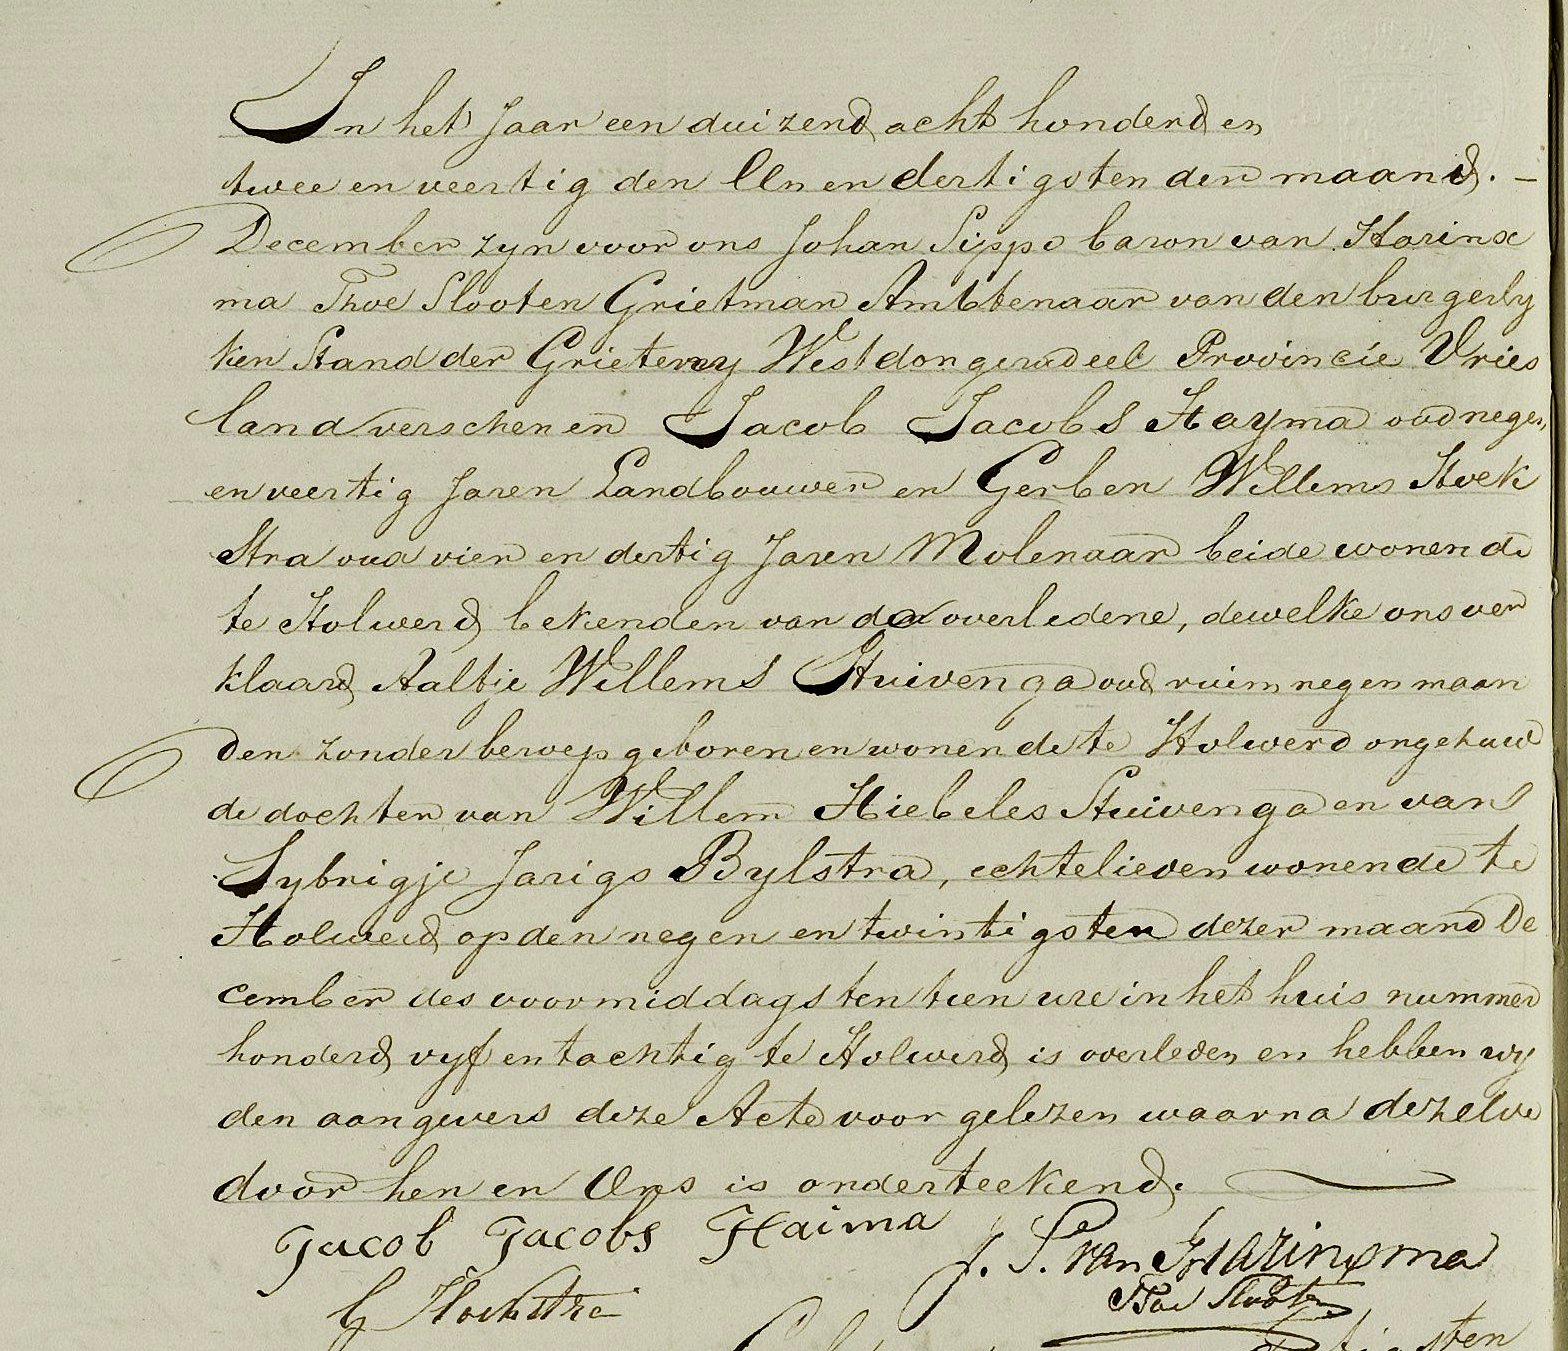 In het Jaar een duizend acht honderd en
twee en veertig den Een en dertigsten der maand. –
December zyn voor ons Johan Sippo baron van Harinx
ma Thoe Slooten Grietman Ambtenaar van den burgerly
ken Stand der Grieteny Westdongeradeel Provincie Vries
land verschenen Jacob Jacobs Hayma oud negen
en veertig Jaren Landbouwer en Gerben Willems Hoek
Stra oud vier en dertig Jaren Molenaar beide wonende
te Holwerd, bekenden van de overledene, dewelke ons ver
klaard, Aaltje Willems Stuivenga oud ruim negen maan
den zonder beroep geboren en wonende te Holwerd ongehuw
de dochter van Willem Hiebeles Stuivenga en van
Sybrigje Jarigs Bylstra, echtelieden wonende te
Holwerd, op den negen en twintigsten dezer maand De
cember des voormiddags ten tien ure in het huis nummer
honderd vyf en tachtig te Holwerd is overleden en hebben wy
den aangevers deze Acte voor gelezen waarna dezelve
door hen en Ons is onderteekend.
Jacob Jacobs Haima
J. S. van Harinxma
G Hoekstra
Thoe Slooten